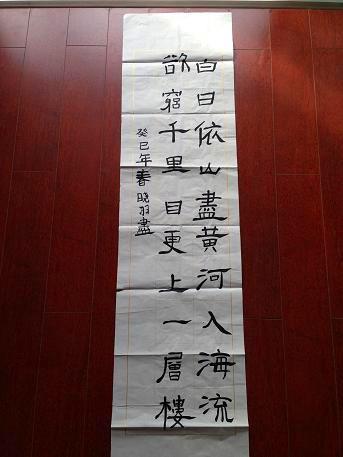 白日依山盡黄河入海流
欲窮千里目更上一層樓
癸巳年春曉羽書